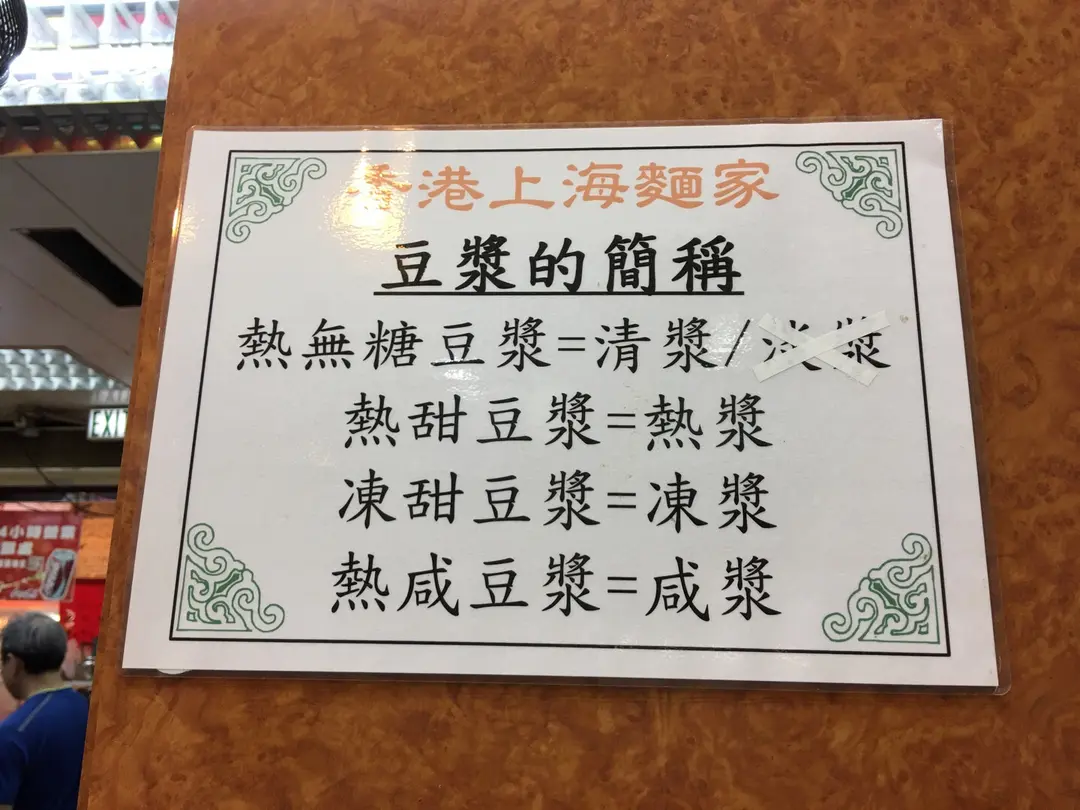 香港上海麵家
豆漿的簡稱
熱無糖豆漿=清漿/淡漿
熱甜豆漿=熱漿
凍甜豆漿=凍漿
熱咸豆漿=咸漿
EXI
4小時營業